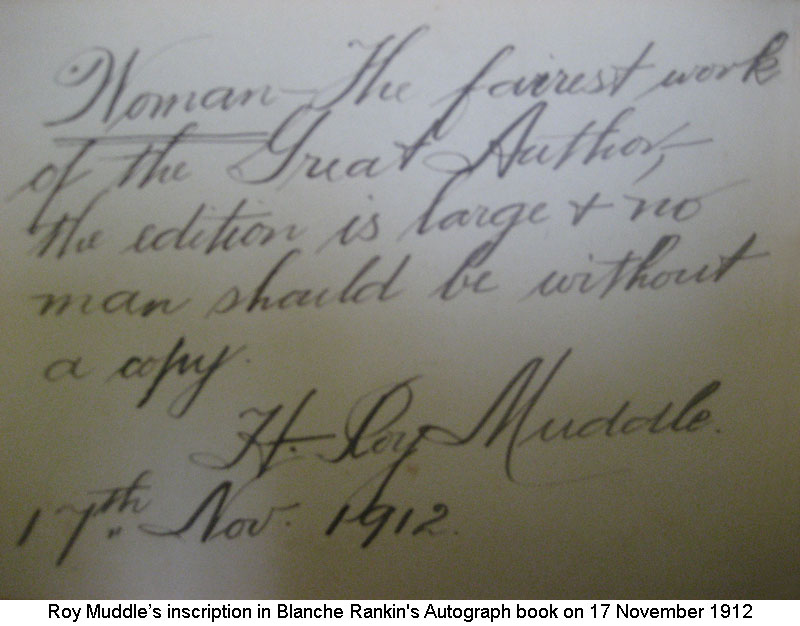 Woman - The fairest work
of the Great Author,
the edition is large & no
man should be without
a copy.
H. Roy Muddle.
17th Nov. 1912.
Roy Muddle’s inscription in Blanche Rankin's Autograph book on 17 November 1912